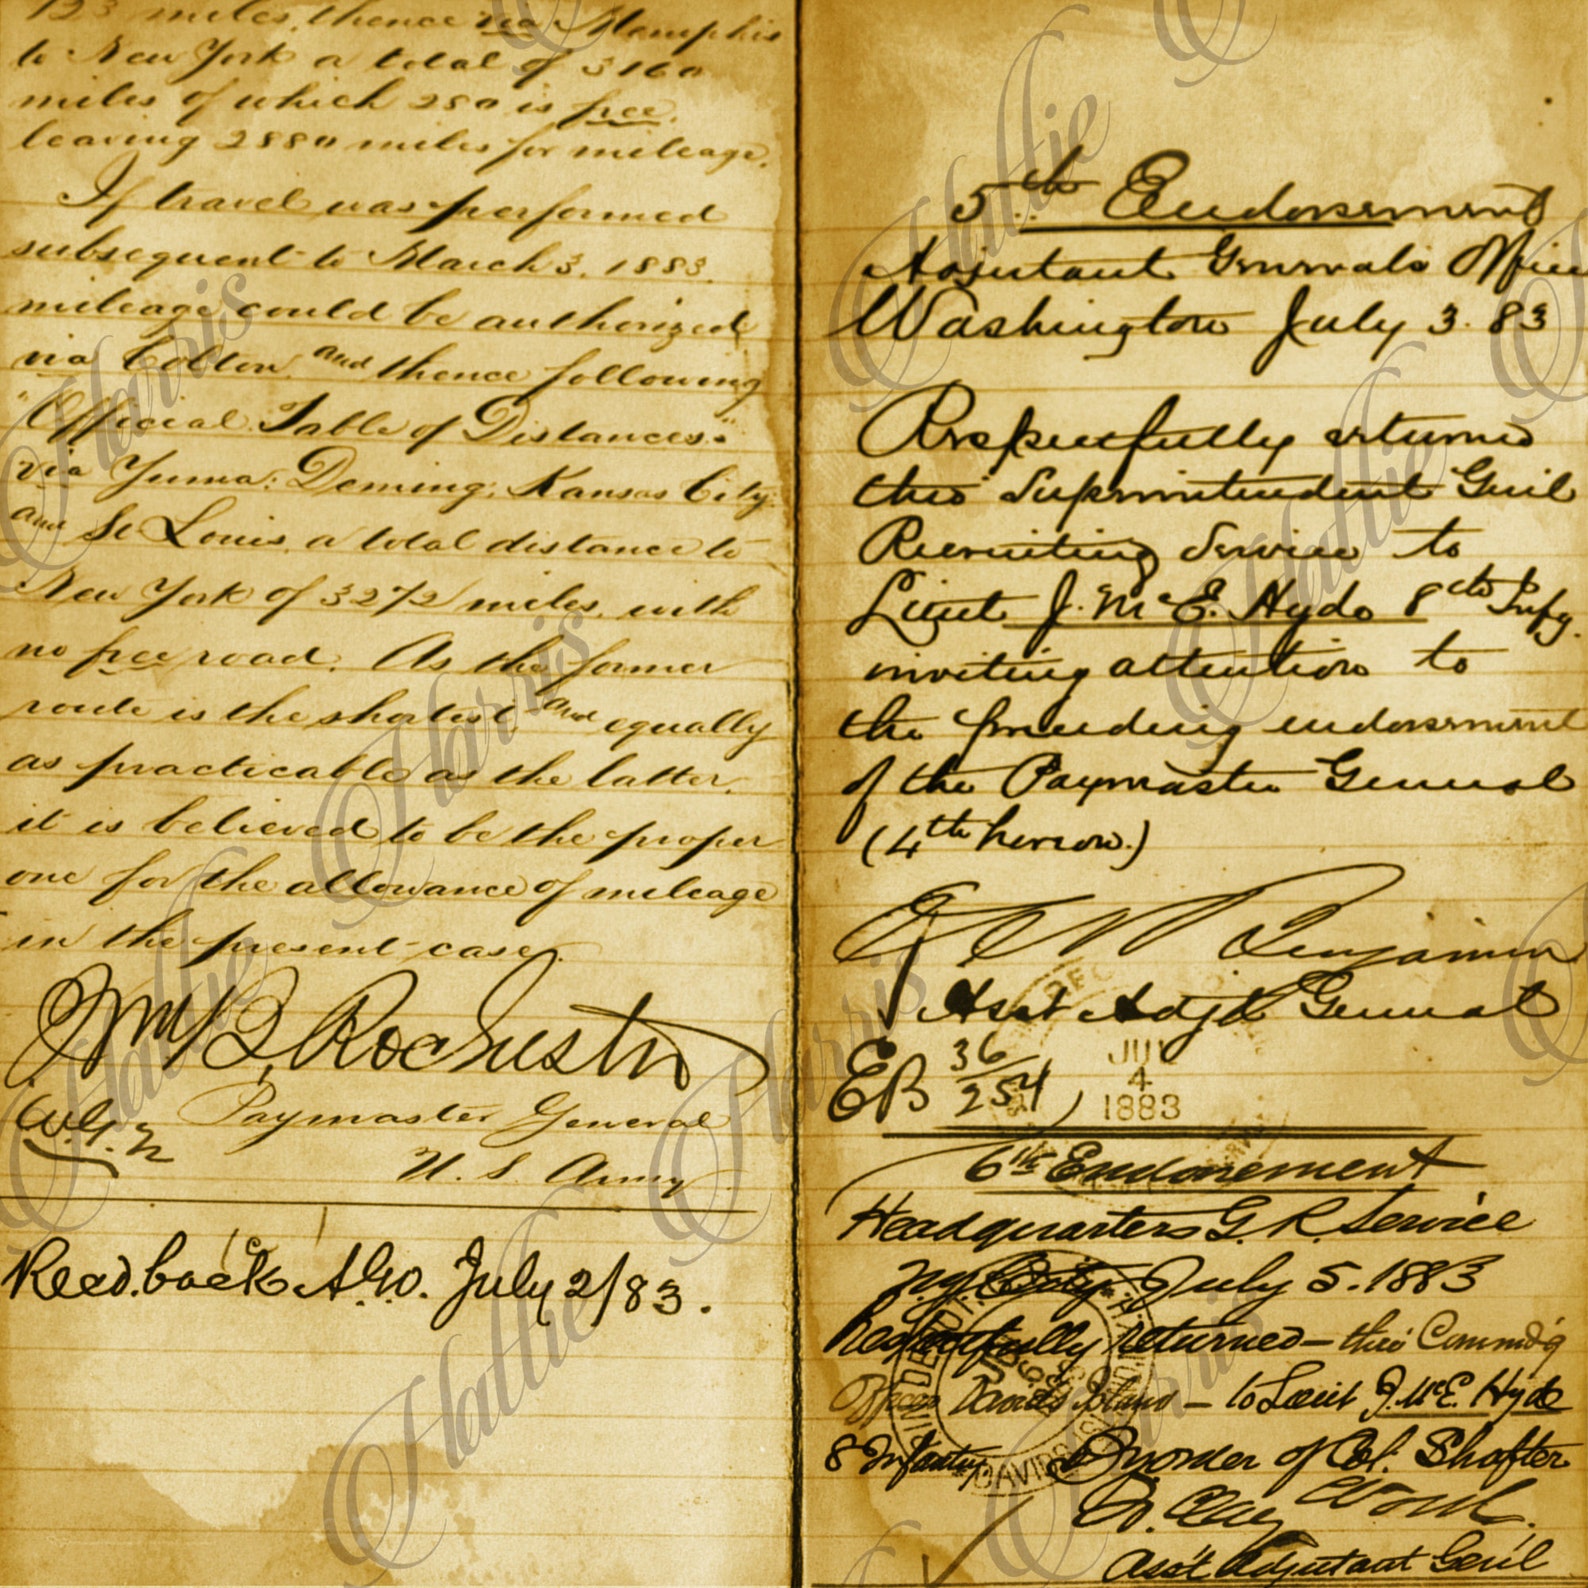 123 miles, thence via Memphis
to New York a total of 3160
miles of which 280 is free,
leaving 2880 miles for mileage.
If travel was performed
subsequent to March 3, 1883,
mileage could be authorized
via Colton, and thence following
"Official Table of Distances,"
via Yuma; Deming; Kansas City;
and St Louis, a total distance to
New York of 3272 miles, with
no free road. As the former
route is the shortest and equally
as practicable as the latter,
it is believed to be the proper
one for the allowance of mileage
in the present case.
Wm B. Rochester
Paymaster General
U. S. Army
Recd. back A.G.O. July 2/83.
5th Endorsement
Adjutant Generals Office
Washington July 3. 83
Respectfully returned
thro' Superintendent Genl
Recruiting Service to
Lieut J. McE. Hyde 8th Infy.
inviting attention to
the preceding endorsement
of the Paymaster General
(4th hereon.)
Benjamin
Asst Adjt General
EB 36/254
JUL
4
1883
6th Endorsement
Headquarters G. R. Service
N.Y. City, July 5. 1883
Respectfully returned — thro' Commd'g
Officer Davids Island — to Lieut J. McE. Hyde
8 Infantry
By order of Col. Shafter
Ass't Adjutant Gen'l
Hattie Harris